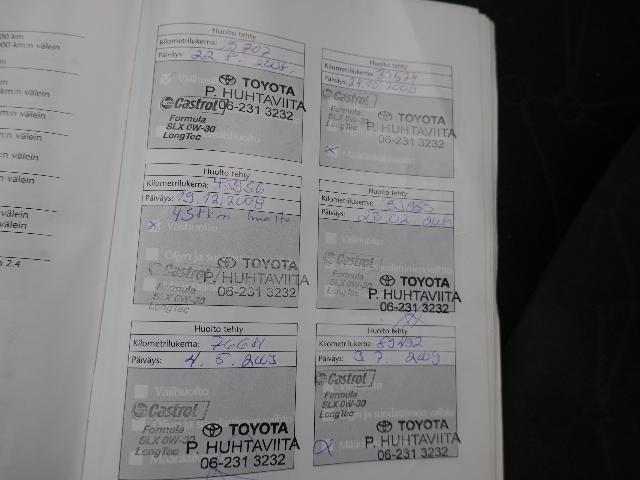 00 km
00 km:n välein
km:n välein
n välein
m:n välein
n välein
välein
välein
n 2.4
Huolto tehty
Kilometrilukema:
Päiväys: 22 8. 2008.
TOYOTA
P. HUHTAVIITA
06-231 3232
Castrol
Formula
SLX 0W-30
LongTec
Huolto tehty
Kilometrilukema:
Päiväys: 24.10.2008
Castrol
Formula
SLX 0W-30
LongTec
TOYOTA
P. HUHTAVIITA
06-231 3232
Huolto tehty
Kilometrilukema:
Päiväys: 19.12.2008
Välihuolto
Castrol
Formula
SLX 0W-30
LongTec
TOYOTA
P. HUHTAVIITA
06-231 3232
Huolto tehty
Kilometrilukema:
Päiväys:
Castrol
Formula
SLX 0W-30
LongTec
TOYOTA
P. HUHTAVIITA
06-231 3232
Huolto tehty
Kilometrilukema:
Päiväys: 4. 5. 2009
Välihuolto
Castrol
Formula
SLX 0W-30
LongTec
TOYOTA
P. HUHTAVIITA
06-231 3232
Huolto tehty
Kilometrilukema: 89492
Päiväys: 3 7. 2009
Castrol
Formula
SLX 0W-30
LongTec
TOYOTA
P. HUHTAVIITA
06-231 3232